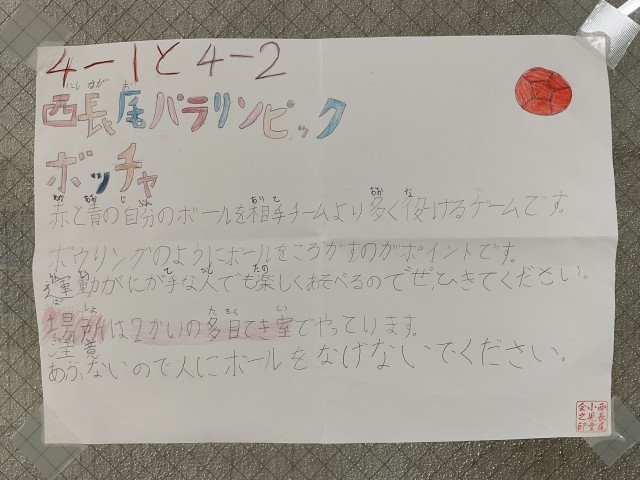 4-1と4-2
西長尾パラリンピック
ボッチャ
赤と青の自分のボールを相手チームより多く役けるゲームです。
ボウリングのようにボールをころがすのがポイントです。
運動がにが手な人でも楽しくあそべるのでぜひきてください。
場所は2かいの多目てき室でやっています。
注意
あぶないので人にボールをなげないでください。
西長尾
小児童
会之印